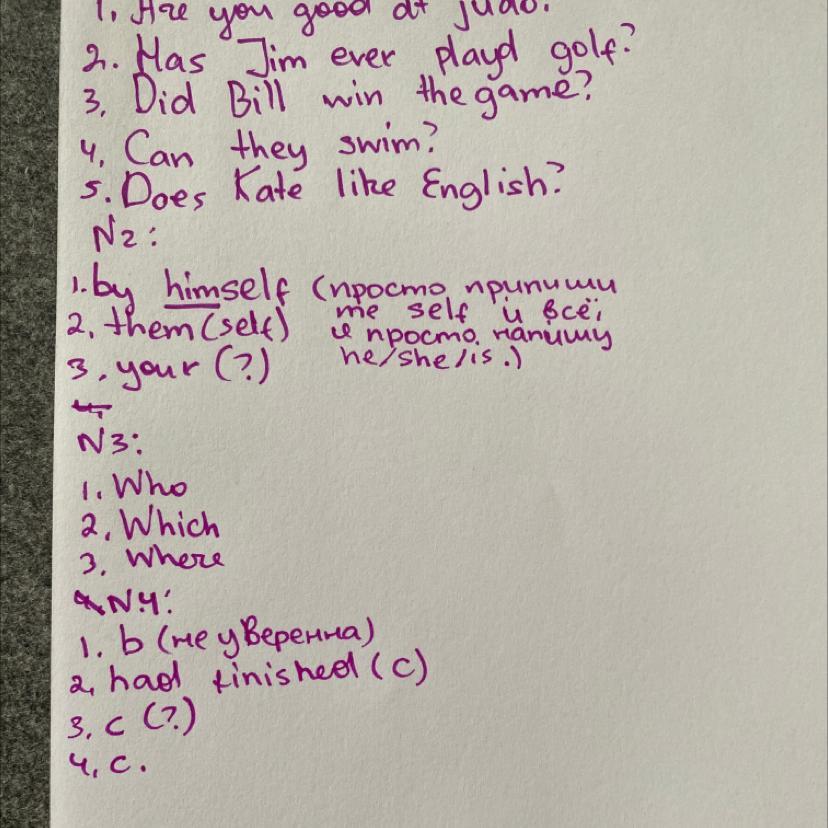 1. Are you good at judo.
2. Has Jim ever playd golf?
3. Did Bill win the game?
4. Can they swim?
5. Does Kate like English?
N2:
1. by himself (просто припишу
me self и всё,
2. them(self) и просто напишу
3. your (?) he/she/is.)
N3:
1. Who
2. Which
3. Where
N4:
1. b (не уверенна)
2. had finished (c)
3. c (?)
4. c.